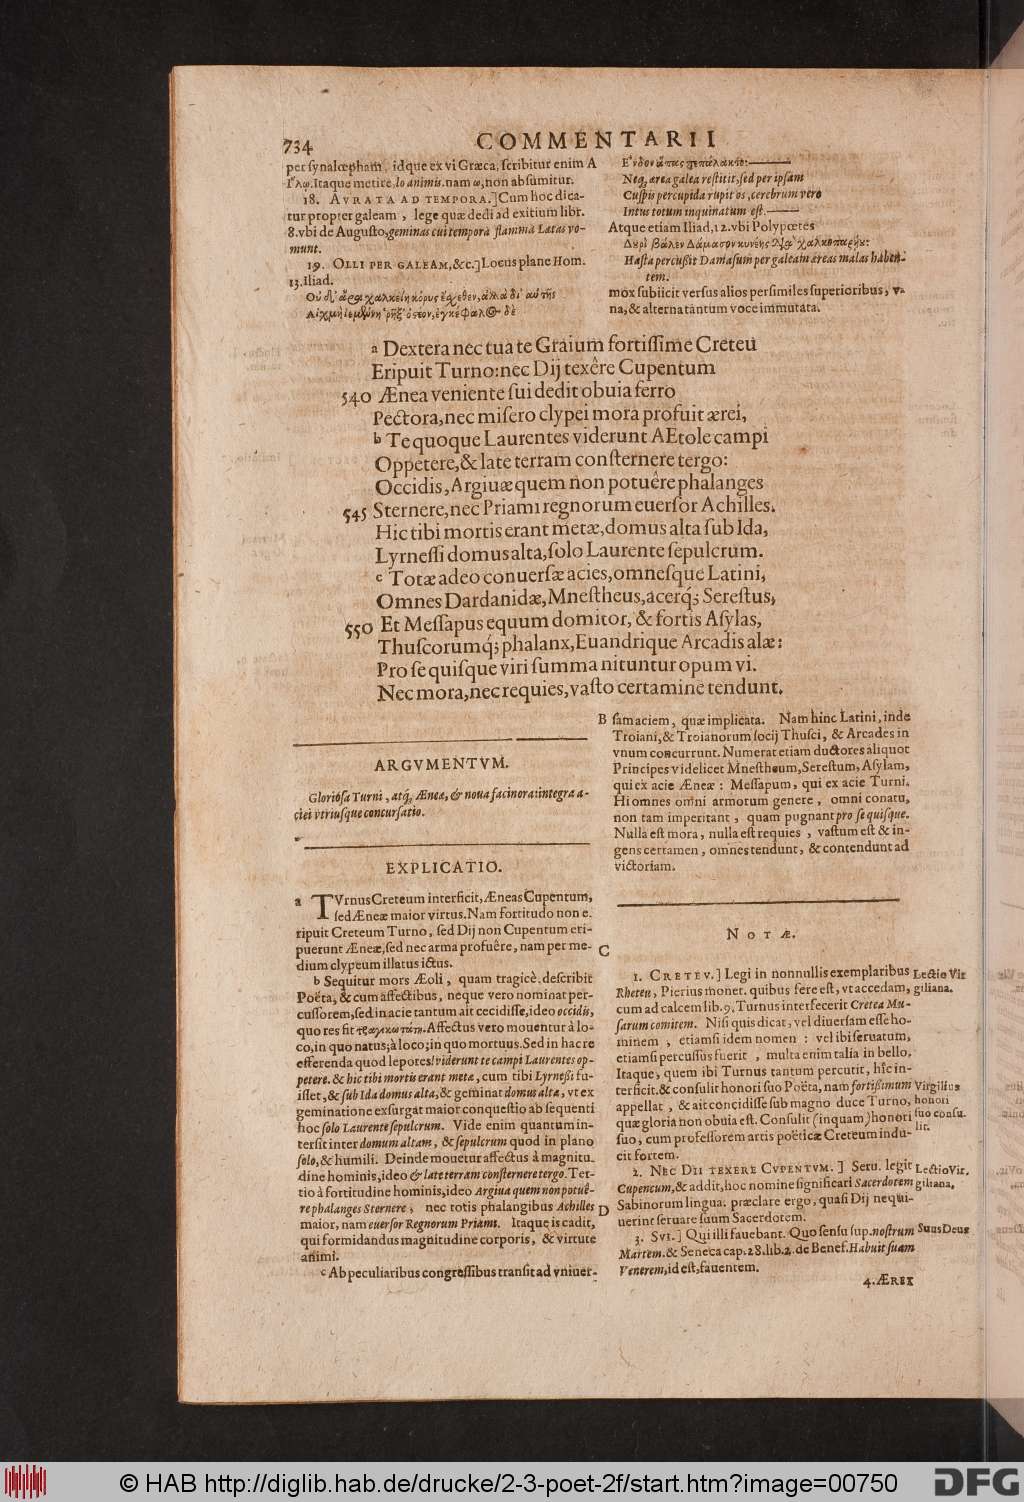 734 COMMENTARII
per synalœpham, idque ex vi Græca, scribitur enim A
Itaque metire, Io animis. nam ω, non absumitur.
18. AVRATA AD TEMPORA.] Cum hoc dica-
tur propter galeam, lege quæ dedi ad exitium libr.
8. vbi de Augusto, geminas cui tempora flamma Latas vo-
munt.
19. OLLI PER GALEAM, &c.] Locus plane Hom.
13. Iliad.
Neq, area galea restitit, sed per ipsam
Cuspis percupida rupit os, cerebrum vero
Intus totum inquinatum est.
Atque etiam Iliad, 12. vbi Polypœtes
Hasta percußit Damasum per galeam æreas malas haben-
tem.
mox subiicit versus alios persimiles superioribus, v-
na, & alterna tantum voce immutata.
a Dextera nec tua te Graium fortissime Creteu
Eripuit Turno: nec Dij texêre Cupentum
540 Ænea veniente sui dedit obuia ferro
Pectora, nec misero clypei mora profuit ærei,
b Te quoque Laurentes viderunt AEtole campi
Oppetere, & late terram consternere tergo:
Occidis, Argiuæ quem non potuêre phalanges
545 Sternere, nec Priami regnorum euersor Achilles.
Hic tibi mortis erant metæ, domus alta sub Ida,
Lyrnessi domus alta, solo Laurente sepulcrum.
c Totæ adeo conuersæ acies, omnesque Latini,
Omnes Dardanidæ, Mnestheus, acerq; Serestus,
550 Et Messapus equum domitor, & fortis Asylas,
Thuscorumq; phalanx, Euandrique Arcadis alæ:
Pro se quisque viri summa nituntur opum vi.
Nec mora, nec requies, vasto certamine tendunt.
ARGVMENTVM.
Gloriosa Turni, atq, Æneæ, & noua facinora: integra a-
ciei vtriusque concursatio.
EXPLICATIO.
a TVrnus Creteum interficit, Æneas Cupentum,
sed Æneæ maior virtus. Nam fortitudo non e-
ripuit Creteum Turno, sed Dij non Cupentum eri-
puerunt Æneæ, sed nec arma profuêre, nam per me-
dium clypeum illatus ictus.
b Sequitur mors Æoli, quam tragicè describit
Poëta, & cum affectibus, neque vero nominat per-
cussorem, sed in acie tantum ait cecidisse, ideo occidis,
quo res fit Affectus vero mouentur à lo-
co, in quo natus; à loco; in quo mortuus. Sed in hac re
efferenda quod lepores! viderunt te campi Laurentes op-
petere. & hic tibi mortis erant metæ, cum tibi Lyrneßi fu-
isset, & sub Ida domus alta, & geminat domus alta, vt ex
geminatione exsurgat maior conquestio ab sequenti
hoc solo Laurente sepulcrum. Vide enim quantum in-
tersit inter domum altam, & sepulcrum quod in plano
solo, & humili. Deinde mouetur affectus à magnitu-
dine hominis, ideo & late terram consternere tergo. Ter-
tio à fortitudine hominis, ideo Argiua quem non potuê-
re phalanges Sternere, nec totis phalangibus Achilles
maior, nam euersor Regnorum Priami. Itaque is cadit,
qui formidandus magnitudine corporis, & virtute
animi.
c Ab peculiaribus congressibus transit ad vniuer-
B sam aciem, quæ implicata. Nam hinc Latini, inde
Troiani, & Troianorum socij Thusci, & Arcades in
vnum concurrunt. Numerat etiam ductores aliquot
Principes videlicet Mnestheum, Serestum, Asylam,
qui ex acie Æneæ: Messapum, qui ex acie Turni.
Hi omnes omni armorum genere, omni conatu,
non tam imperitant, quam pugnant pro se quisque.
Nulla est mora, nulla est requies, vastum est & in-
gens certamen, omnes tendunt, & contendunt ad
victoriam.
NOTÆ.
C
1. CRETEV.] Legi in nonnullis exemplaribus Lectio Vir
Rheteu, Pierius monet. quibus fere est, vt accedam, giliana.
cum ad calcem lib. 9. Turnus interfecerit Cretea Mu-
sarum comitem. Nisi quis dicat, vel diuersam esse ho-
minem, etiamsi idem nomen: vel ibi seruatum,
etiamsi percussus fuerit, multa enim talia in bello.
Itaque, quem ibi Turnus tantum percutit, hîc in-
terficit. & consulit honori suo Poëta, nam fortißimum Virgilius
appellat, & ait concidisse sub magno duce Turno, honori
quæ gloria non obuia est. Consulit (inquam) honori suo consu-
suo, cum professorem artis poëticæ Creteum indu- lit.
cit fortem.
2. NEC DII TEXERE CVPENTVM.] Seru. legit Lectio Vir.
Cupencum, & addit, hoc nomine significari Sacerdotem giliana.
Sabinorum lingua: præclare ergo, quasi Dij nequi-
D uerint seruare suum Sacerdotem.
3. SVI.] Qui illi fauebant. Quo sensu sup. nostrum Suus Deus
Martem. & Seneca cap. 28. lib. 2. de Benef. Habuit suam
Venerem, id est, fauentem.
4. ÆREX
© HAB http://diglib.hab.de/drucke/2-3-poet-2f/start.htm?image=00750
DFG